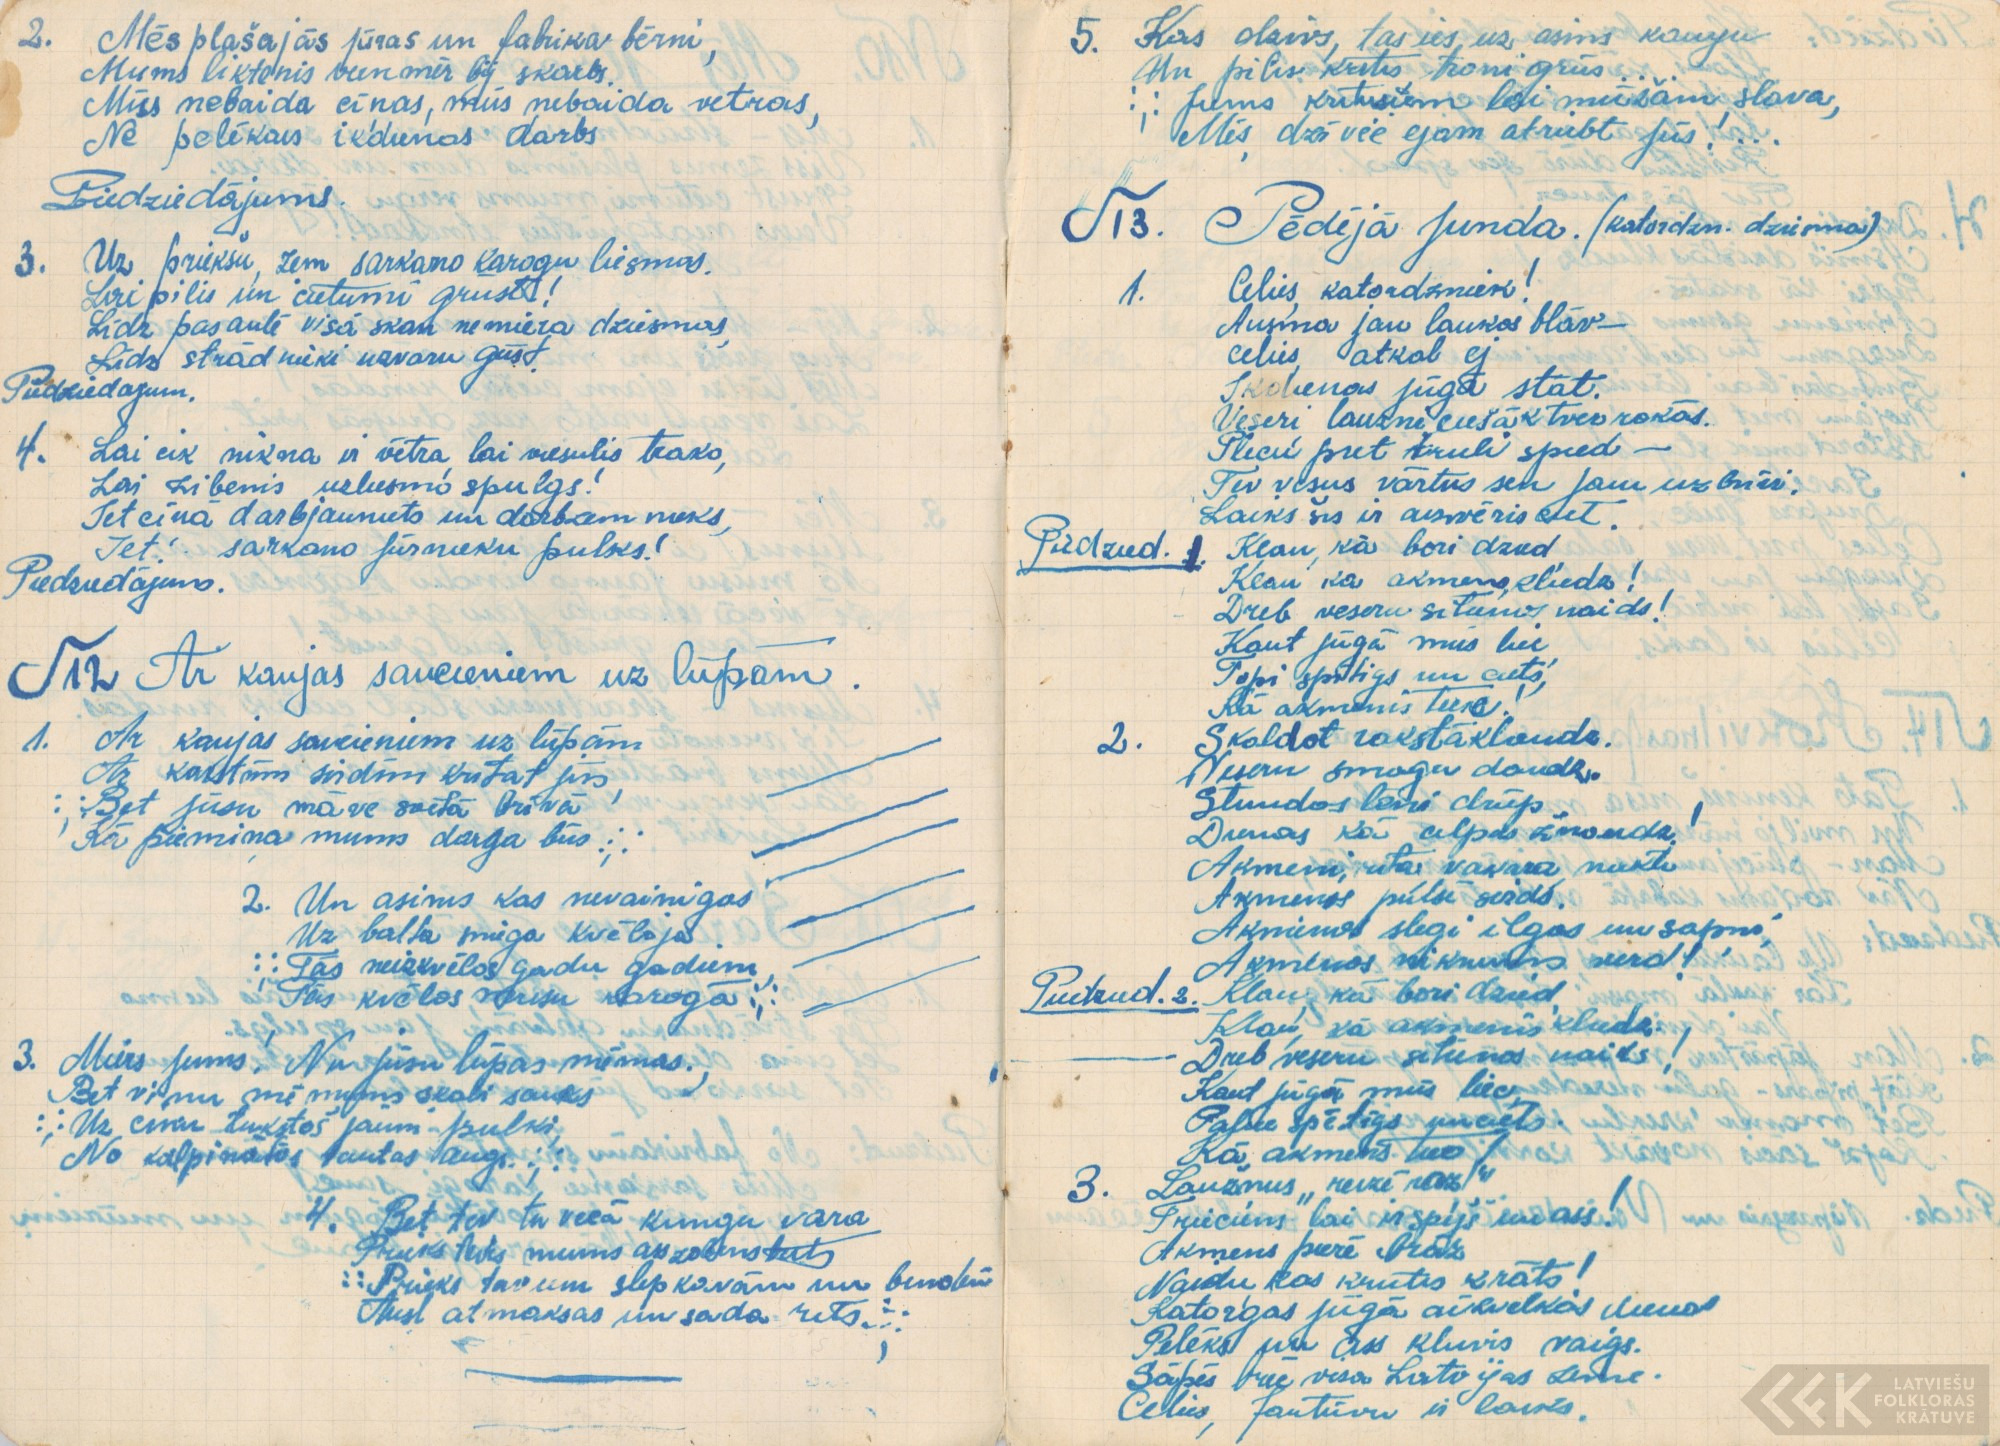 2. Mēs plašajās jūras un fabrika bērni,
Mums liktenis vienmēr bij skarbs.
Mūs nebaida cīņas, mūs nebaida vetras,
Nē pelēkais ikdienas darbs
Piedziedājums.
3. Uz priekšu, zem sarkano karogu liesmas.
Lai pilis un cietumi grūst!
Līdz pasaulē visā skan nemiera dziesmas,
Līdz strādnieki uzvaru gūst.
Piedziedājum.
4. Lai cik nikna ir vētra, lai viesulis trako,
Lai zibenis uzliesmo spulgs!
Iet cīņā darbjaunats un darbzemnieks,
Iet! sarkano jūrnieku pulks!
Piedziedājums.
№12 Ar kaujas saucieniem uz lūpām.
1. Ar kaujas saucieniem uz lūpām
Ar karstām sirdīm kritāt jūs,
:;: Bet jūsu nāve svētā brīvā
Kā piemiņa mums darga būs :;:
2. Un asinis kas nevainigas
Uz balta sniega kvēloja.
:;: Tās neizkvēlos gadu gadiem,
Tās kvēlos mūsu karogā :;:
3. Miers jums! Nu jūsu lūpas mēmas.,
Bet viņu mēmums skaļi sauks
:;: Uz cīņu tukstoš jauni pulki,
No kalpinātās tautas augs. :;:
4. Bet tev tu vecā kungu vara
Prieks liks mums asi zobens tuts
:;: Prieks taviem slepkavām un bendēm
Aust atmaksas un soda rīts. :;:
5. Kas dzīvs, tas ies uz asins kauju
Un pilis kritīs troņi grūs.
:;: Jums kritušiem lai mūžam slava,
Mēs dzīvie ejam atriebt jūs! ...
№13. Pēdējā junda. (katordzn. dziesma)
1. Celies katordzniek!
Ausma jau laukos blāv—
Celies, atkal ej
Ikdienas jūgā stāt.
Veseri lauzni ciešāk tver rokās.
Pleci pret truli spied —
Tev visus vārtus sen jau uzbūvi.
Laiks šis ir aizvēris ciet.
Piedzied. 1. Klau, kā bori dzied
Klau kā akmens, klieda!
Dreb veseru sitienos naids!
Kaut jūgā mūs liec
Topi spītigs un ciets,
Kā akmenis tiec!
2. Skaldot rakstāklauda.
Veseru smagu daudz.
Stundas lēni dzup
Dienas kā elpas žņaudz!
Akmeņi, utā vakara nakti
Akmenos pulsē sirds.
Akmenos slegi ilgas un sapņi,
Akmenos niknums verd!
Piedzied. 2. Klau, kā bori dzied,
Klau, kā akmenis klieds!
Dreb veseru sitienos naids!
Kaut jūgā mūs liec,
Paliec spītigs un ciets.
Kā akmens tiec!
3. Laužņus „reizē raz!"
Trieciens lai ir spējš un ass!
Akmens putē brāz
Naidu kas krūtīs krāts!
Katorgas jūgā aizvelkās dienas
Pelēks un ass kļuvis vaigs.
Sāpēs brēc visa Latvijas zeme.
Celies, Jautumu ir laiks.
LATVIEŠU
FOLKLORAS
KRĀTUVE